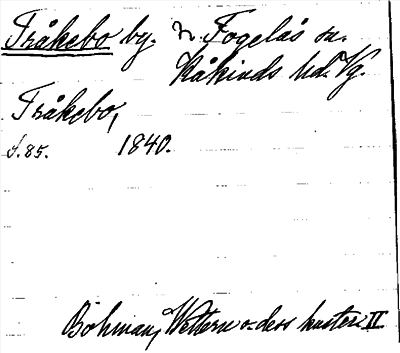 Tråkebo by. N. Fogelås sn.
Kåkinds hd. Vg.
Tråkebo,
s. 85. 1840.
Böhman, Wettern o. dess kuster II